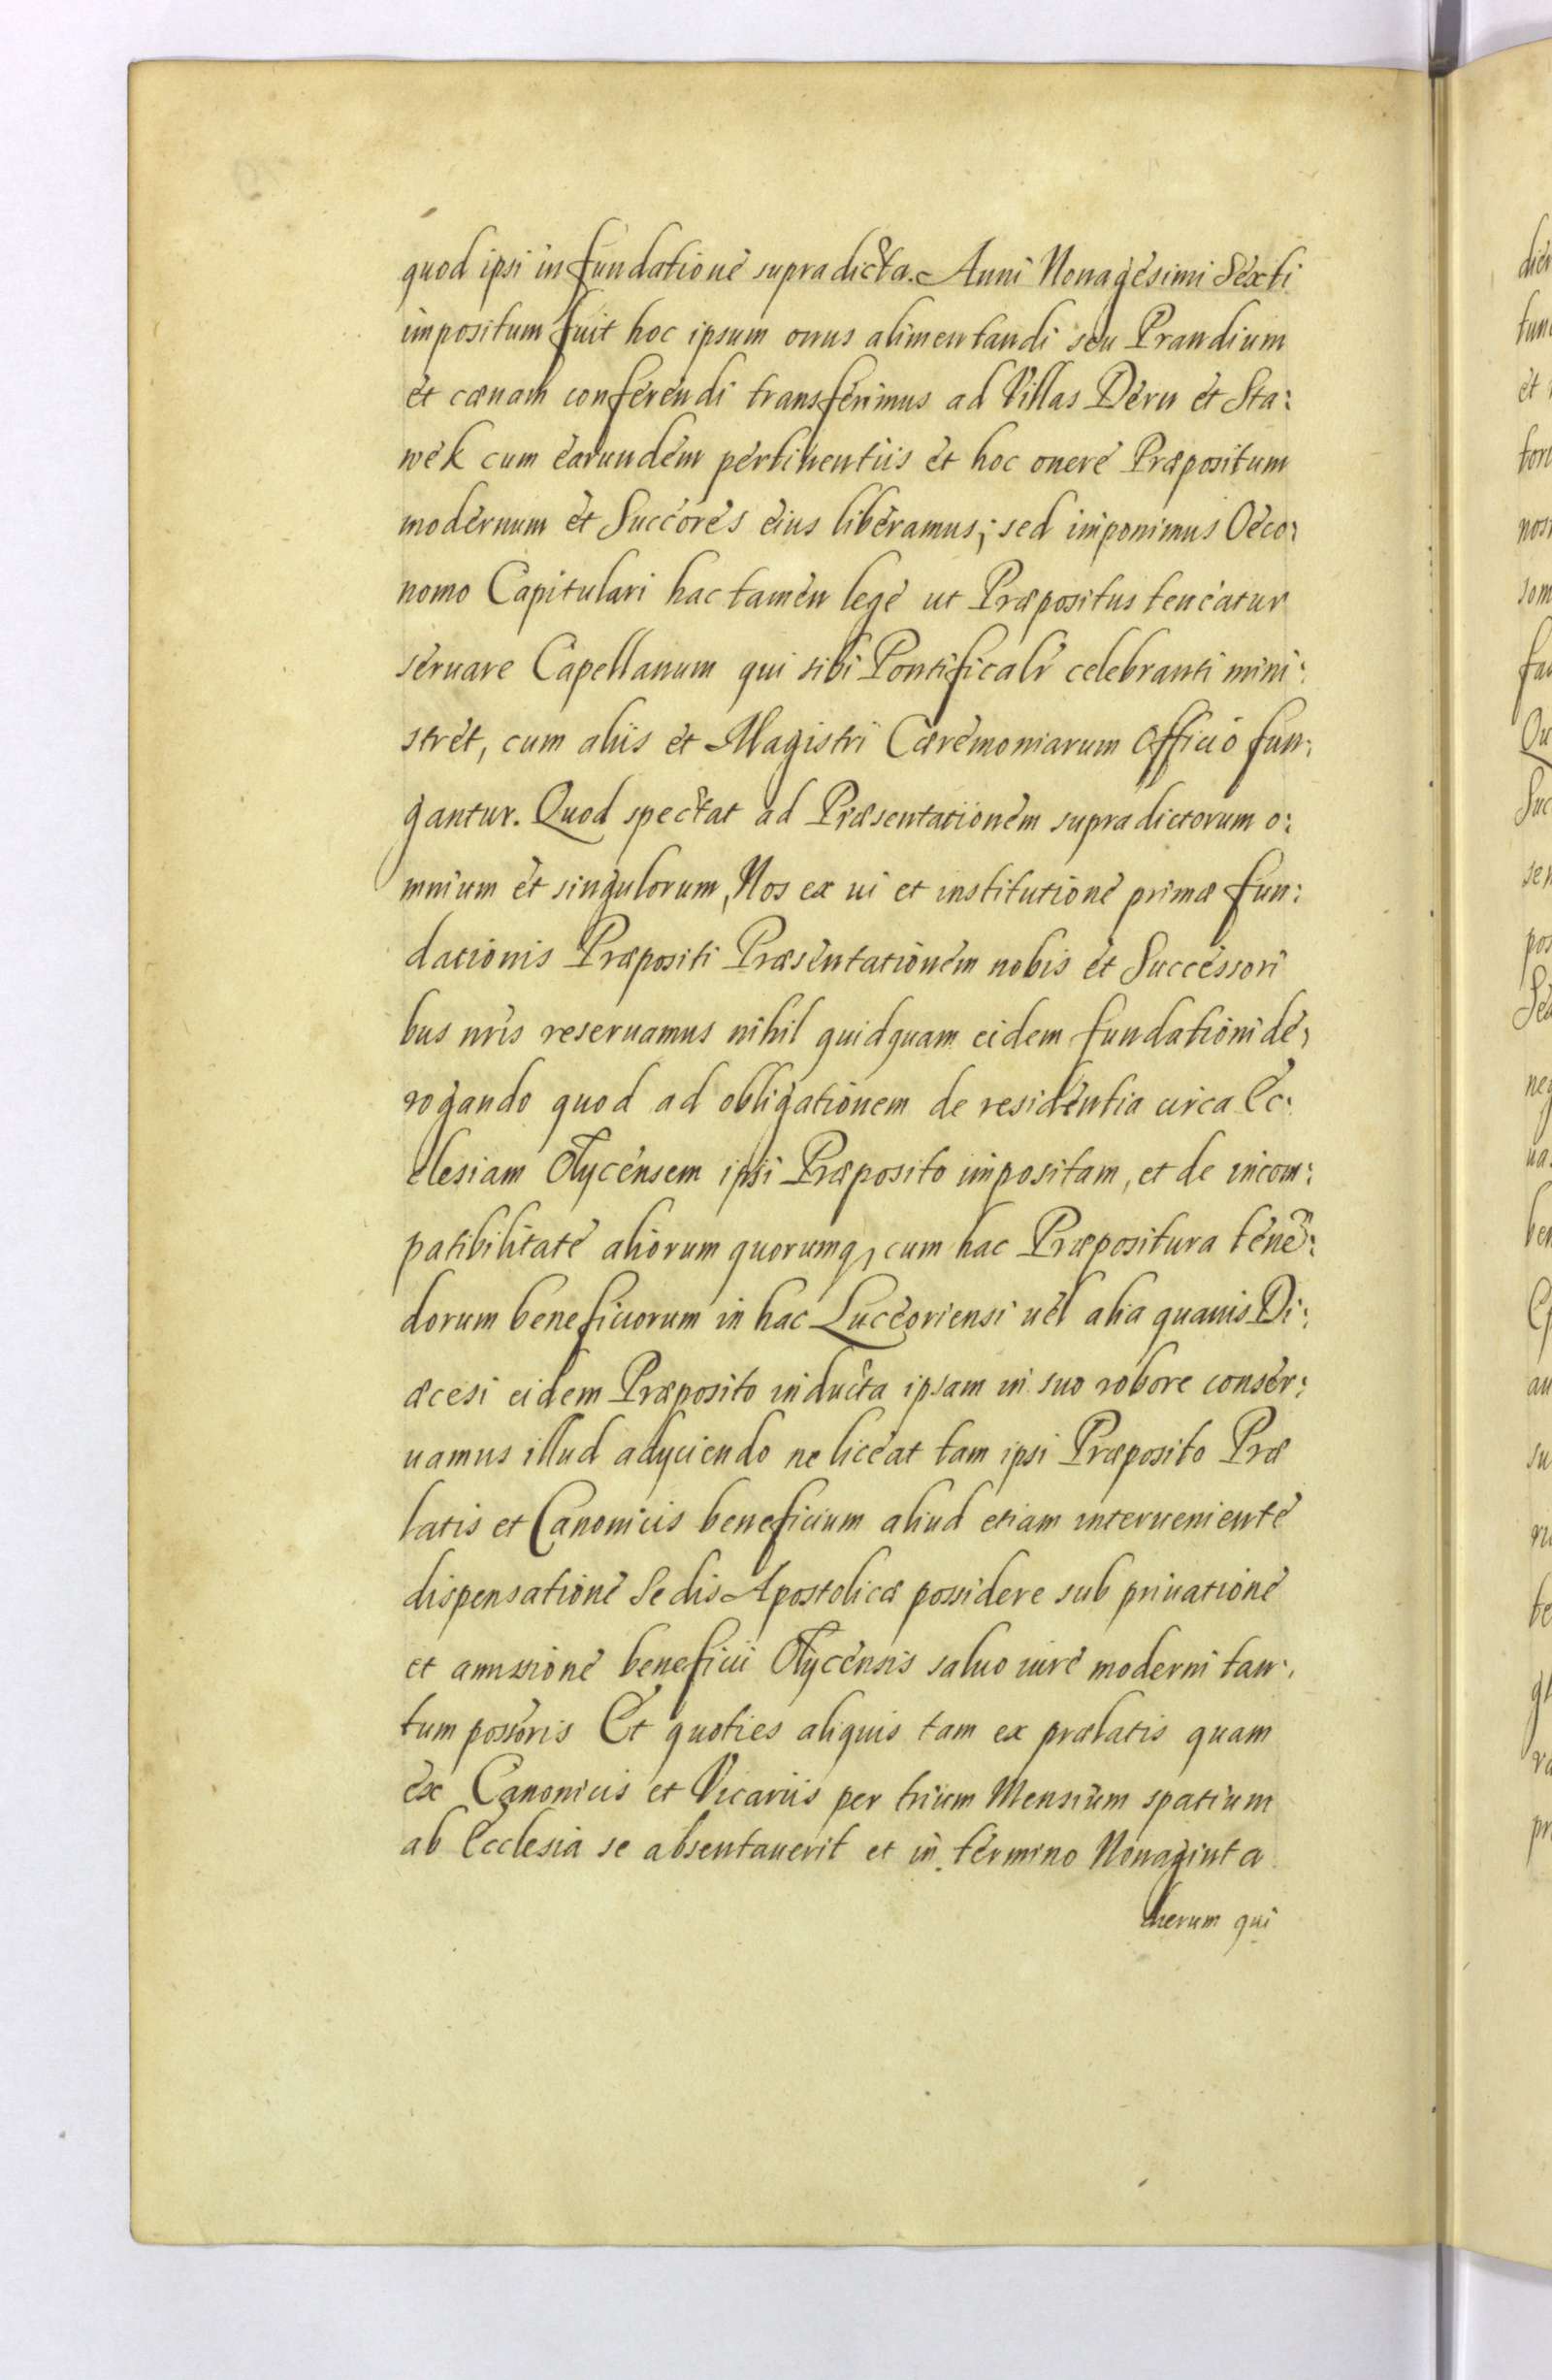 quod ipsi in fundatione supradicta. Anni Nonagesimi Sexti
impositum fuit hoc ipsum onus alimentandi seu Prandium
et cænam conferendi transferimus ad Villas Dern et Sta:
wek cum earundem pertinentiis et hoc onere Præpositum
modernum et Succores eius liberamus; sed imponimus Oeco:
nomo Capitulari hac tamen lege ut Præpositus teneatur
seruare Capellanum qui sibi Pontificalr celebranti mini:
stret, cum aliis et Magistri Cæremoniarum Officio fun:
gantur. Quod spectat ad Præsentationem supradictorum o:
mnium et singulorum, Nos ex ui et institutione primæ fun:
dationis Præpositi Præsentationem nobis et Successori
bus nris reseruamus nihil quidquam eidem fundationi de:
rogando quod ad obligationem de residentia circa Ec:
clesiam Olycensem ipsi Præposito impositam, et de incom:
patibilitate aliorum quorumq, cum hac Præpositura tenē:
dorum beneficiorum in hac Luceoriensi uel alia quauis Di:
æcesi eidem Præposito inducta ipsam in suo robore conser:
uamus illud adyciendo ne liceat tam ipsi Præposito Præ
latis et Canonicis beneficium aliud etiam interueniente
dispensatione Sedis Apostolicæ possidere sub priuatione
et amissione beneficii Olycensis saluo iure moderni tan:
tum possoris Et quoties aliquis tam ex prælatis quam
ex Canonicis et Vicariis per trium Mensium spatium
ab Ecclesia se absentauerit et in termino Nonaginta
dierum qui